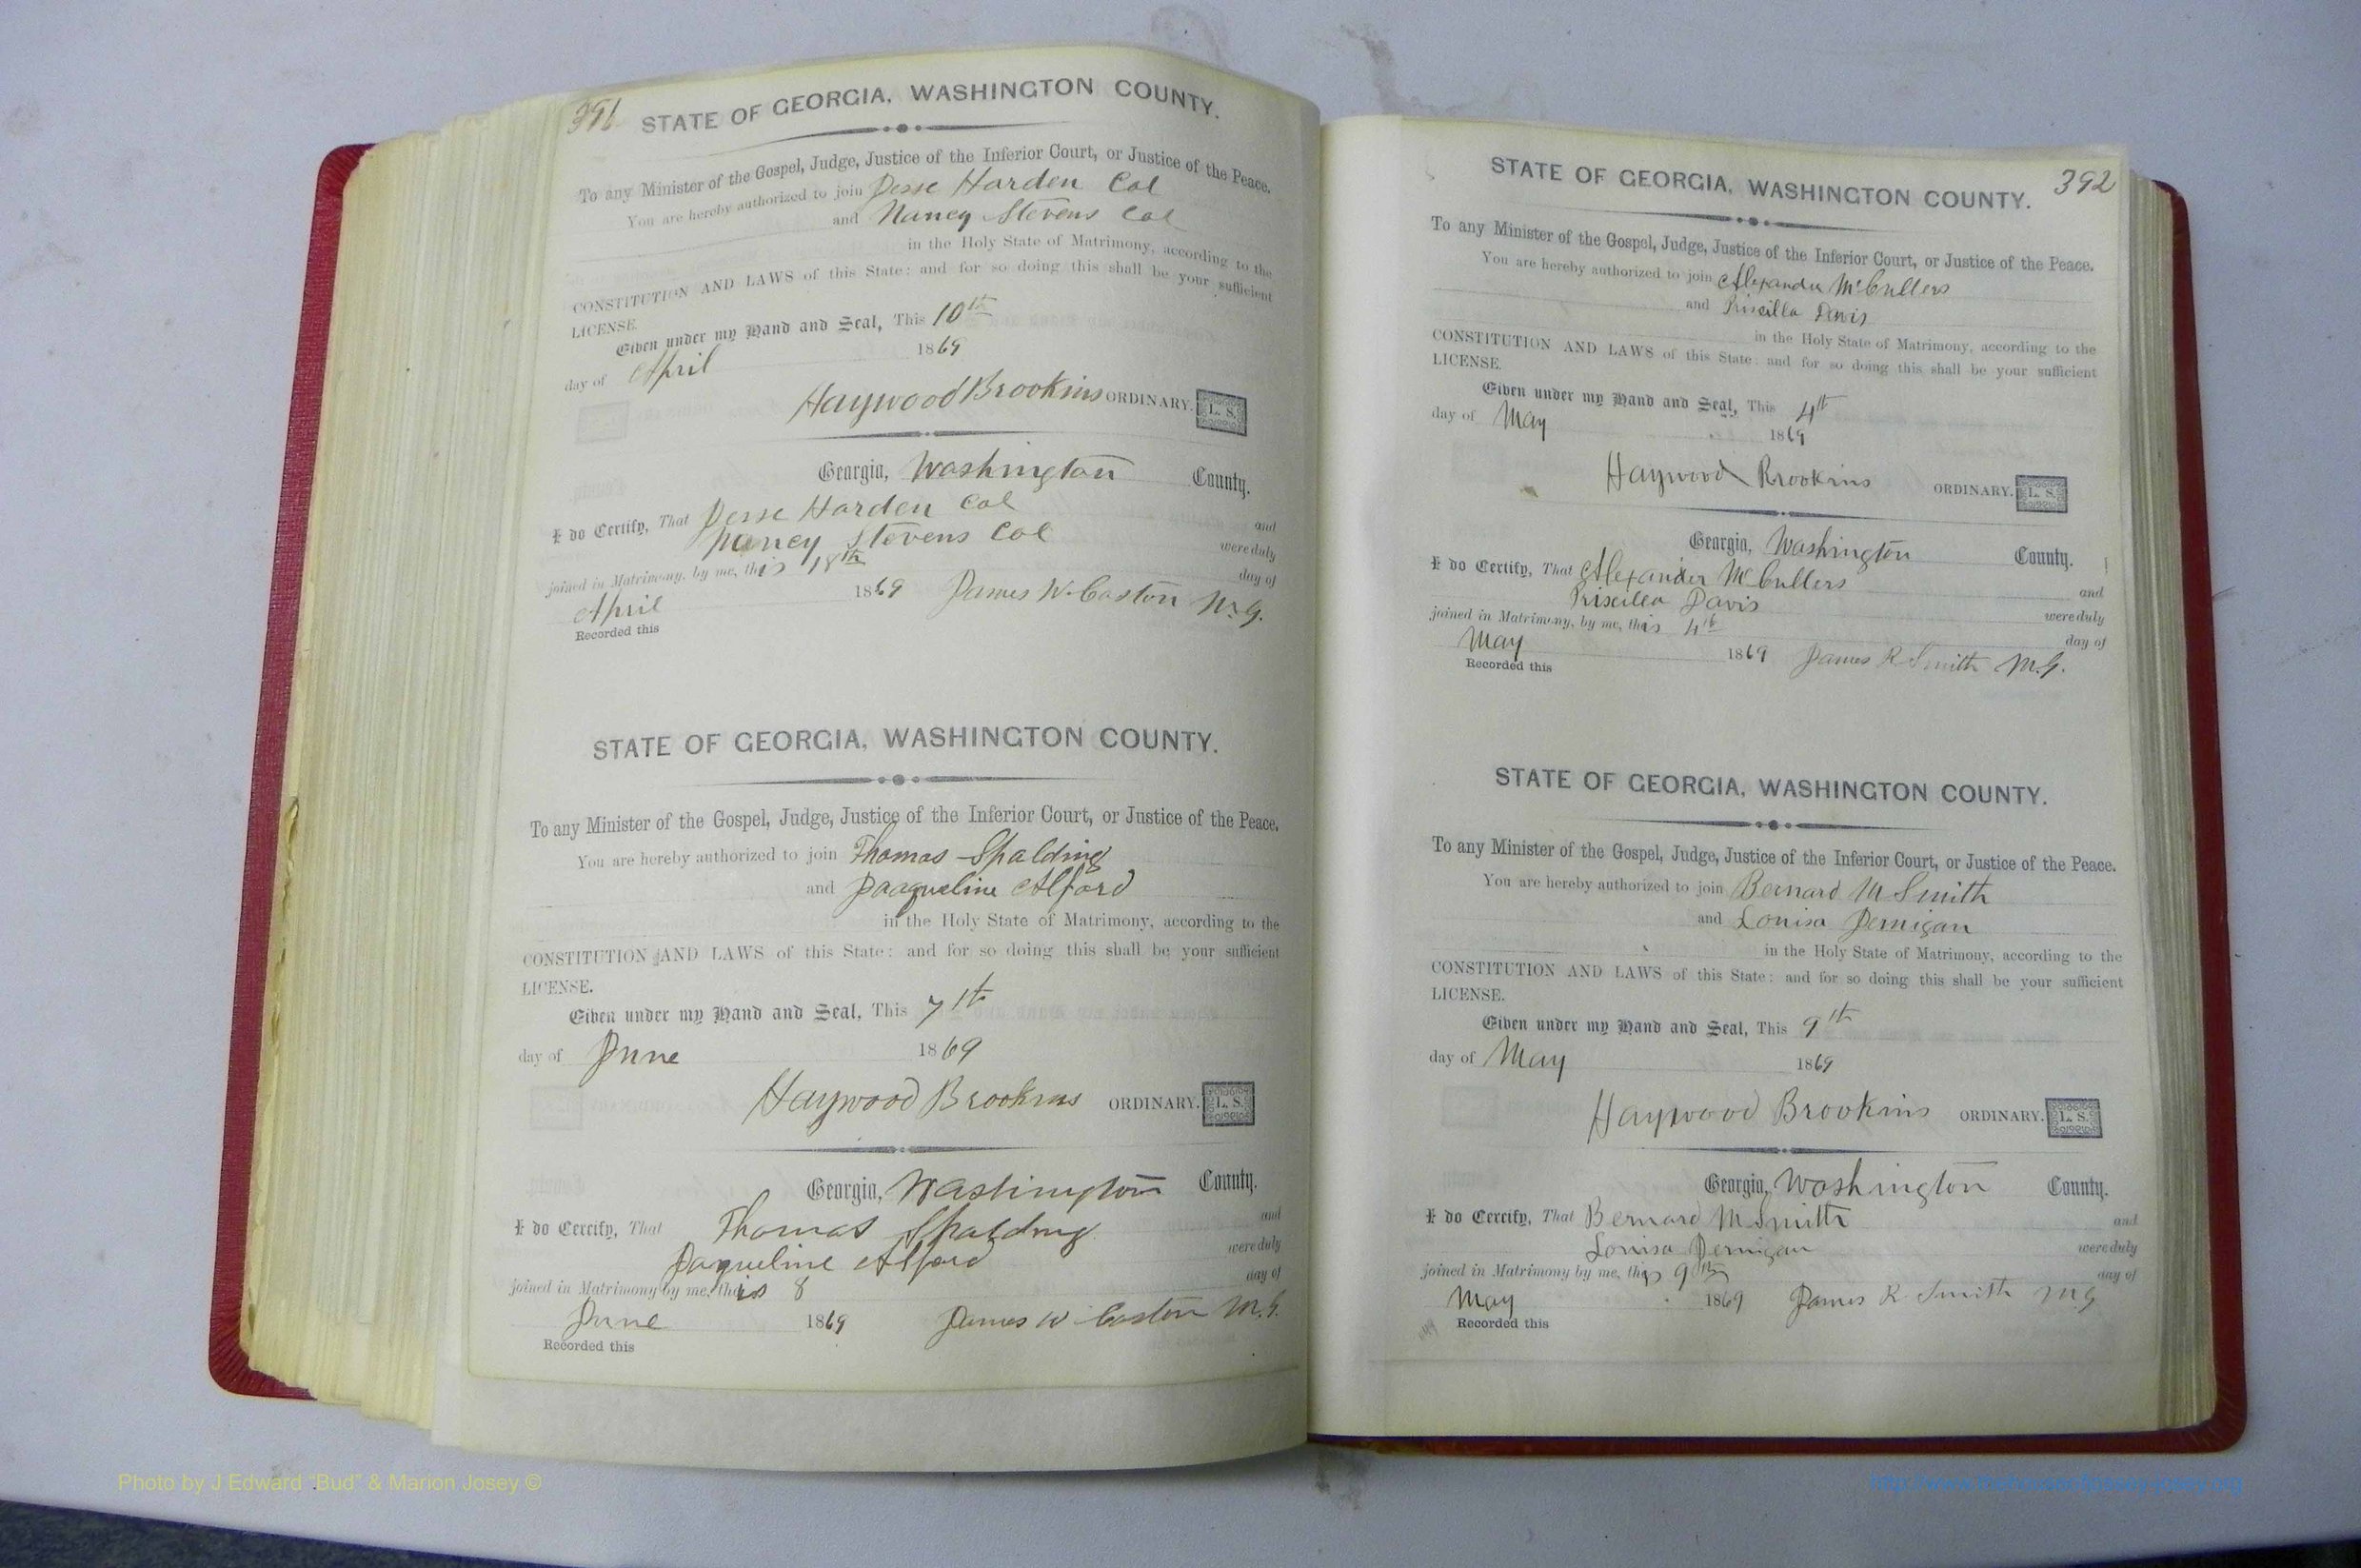 391
STATE OF GEORGIA, WASHINGTON COUNTY.
To any Minister of the Gospel, Judge, Justice of the Inferior Court, or Justice of the Peace.
You are hereby authorized to join Jesse Harden Col
and Nancy Stevens Col
in the Holy State of Matrimony, according to the
CONSTITUTION AND LAWS of this State: and for so doing this shall be your sufficient
LICENSE.
Given under my Hand and Seal, This 10th
day of April 1869
Haywood Brookins ORDINARY. L. S.
Georgia, Washington County.
I do Certify, That Jesse Harden Col and
Nancy Stevens Col were duly
joined in Matrimony, by me, this 18th day of
April 1869 James W. Caston M.G.
Recorded this
STATE OF GEORGIA, WASHINGTON COUNTY.
To any Minister of the Gospel, Judge, Justice of the Inferior Court, or Justice of the Peace.
You are hereby authorized to join Thomas Spalding
and Jaaqueline Alford
in the Holy State of Matrimony, according to the
CONSTITUTION AND LAWS of this State: and for so doing this shall be your sufficient
LICENSE.
Given under my Hand and Seal, This 7th
day of June 1869
Haywood Brookins ORDINARY. L. S.
Georgia, Washington County.
I do Cercify, That Thomas Spalding and
Jaqueline Alford were duly
joined in Matrimony by me, this 8 day of
June 1869 James W Caston M.G.
Recorded this
392
STATE OF GEORGIA, WASHINGTON COUNTY.
To any Minister of the Gospel, Judge, Justice of the Inferior Court, or Justice of the Peace.
You are hereby authorized to join Alexander McCullers
and Priscilla Davis
in the Holy State of Matrimony, according to the
CONSTITUTION AND LAWS of this State: and for so doing this shall be your sufficient
LICENSE.
Given under my Hand and Seal, This 4th
day of May 1869
Haywood Brookins ORDINARY. L. S.
Georgia, Washington County.
I do Certify, That Alexander McCullers and
Priscilla Davis were duly
joined in Matrimony, by me, this 4th day of
May 1869 James R Smith M.G.
Recorded this
STATE OF GEORGIA, WASHINGTON COUNTY.
To any Minister of the Gospel, Judge, Justice of the Inferior Court, or Justice of the Peace.
You are hereby authorized to join Bernard M Smith
and Louisa Jernigan
in the Holy State of Matrimony, according to the
CONSTITUTION AND LAWS of this State: and for so doing this shall be your sufficient
LICENSE.
Given under my Hand and Seal, This 9th
day of May 1869
Haywood Brookins ORDINARY. L. S.
Georgia, Washington County.
I do Cercify, That Bernard M Smith and
Louisa Jernigan were duly
joined in Matrimony by me, this 9th day of
May 1869 James R Smith MG
Recorded this
Photo by J Edward "Bud" & Marion Josey ©